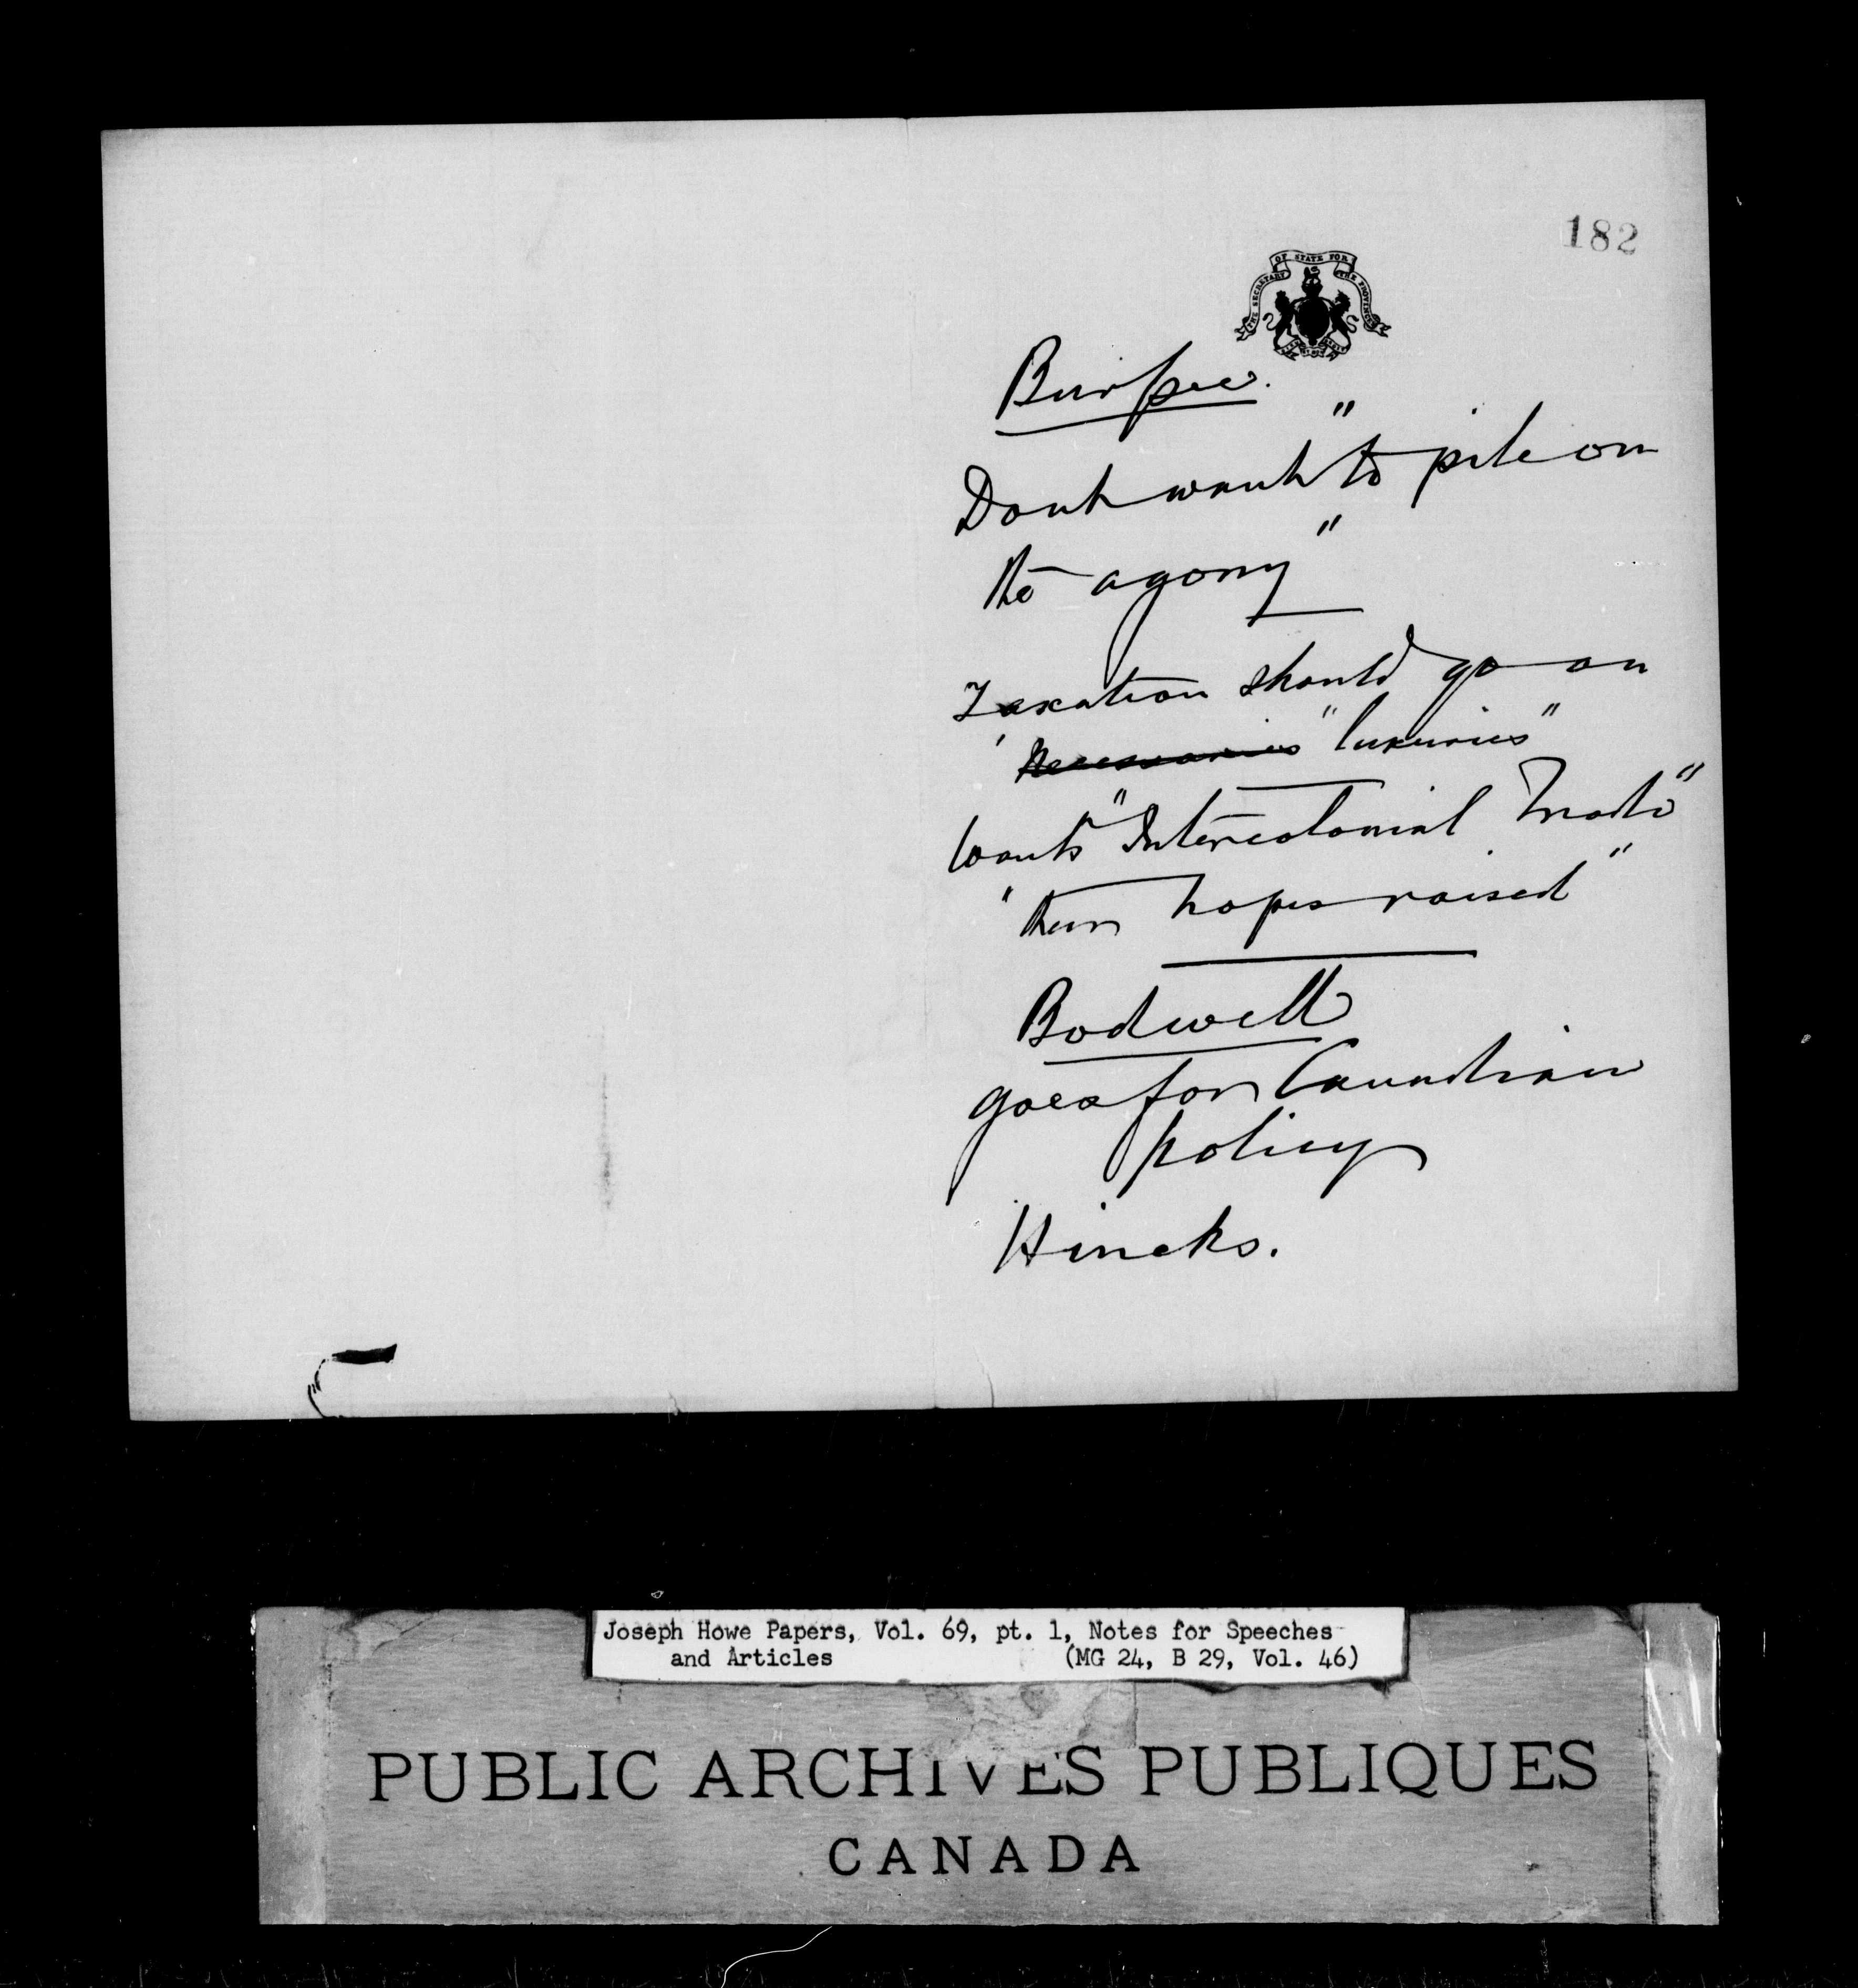 182
THE SECRETARY OF STATE FOR THE PROVINCES
Burpee.
Dont want "to pile on
the agony"
Taxation should go on
Necessaries "luxuries"
wants "Intercolonial Trade"
"their hopes raised"
Bodwell
goes for Canadian
policy
Hincks.
Joseph Howe Papers, Vol. 69, pt. 1, Notes for Speeches
and Articles (MG 24, B 29, Vol. 46)
PUBLIC ARCHIVES PUBLIQUES
CANADA